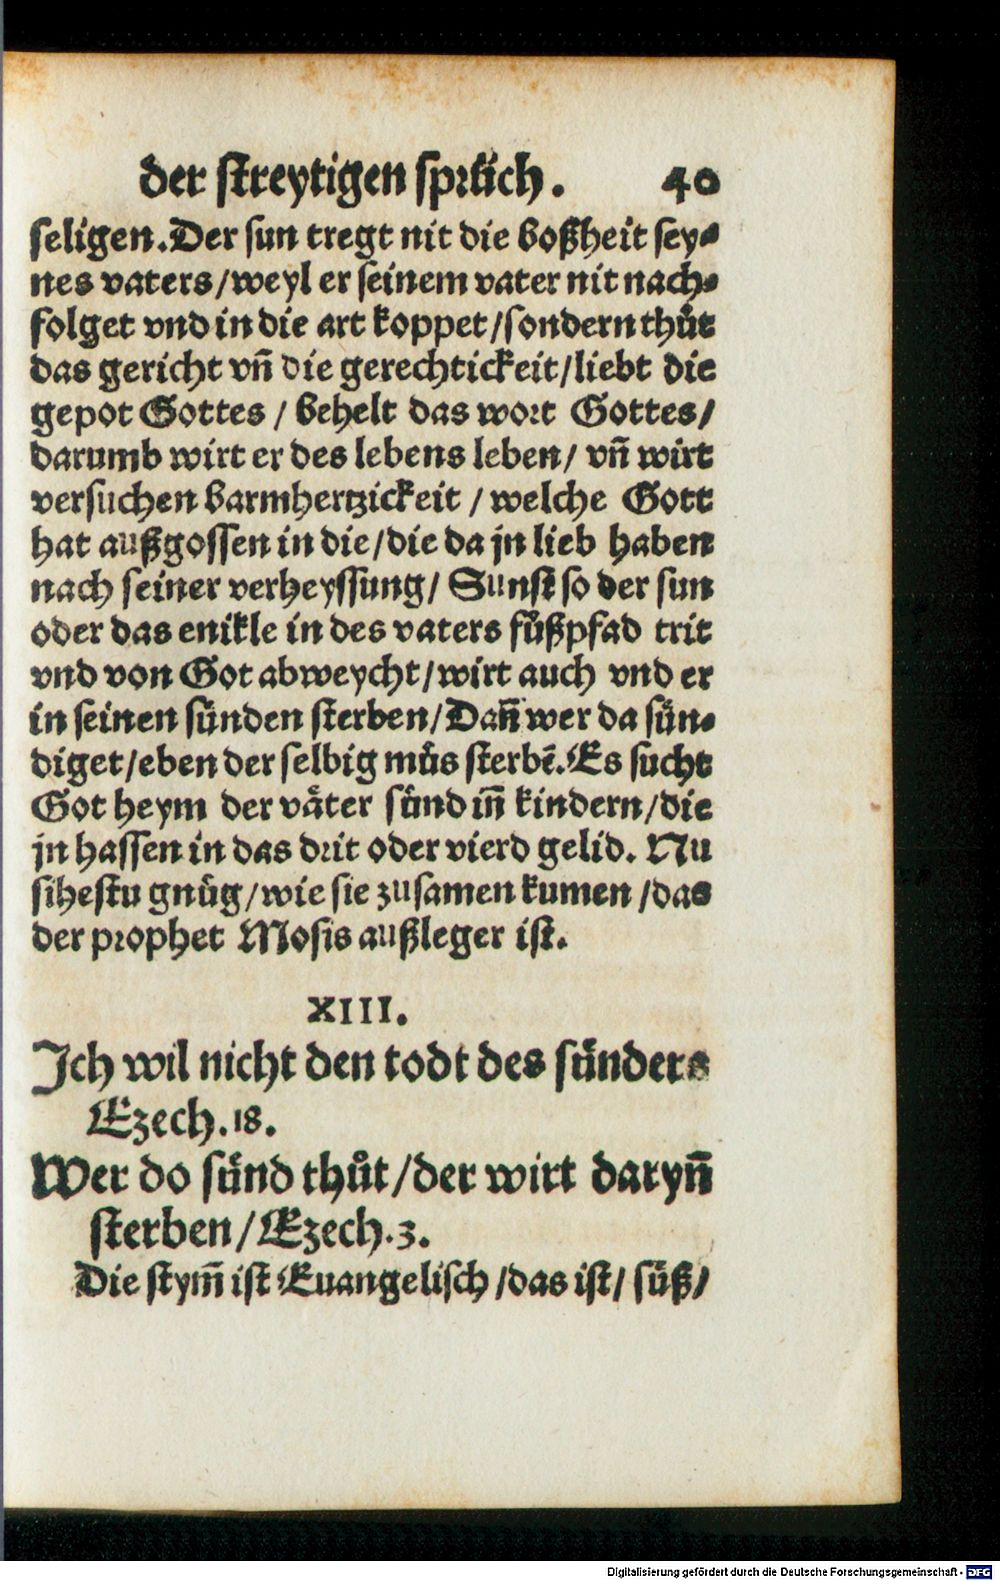 der streytigen sprüch. 40
seligen. Der sun tregt nit die boßheit sey-
nes vaters/weyl er seinem vater nit nach-
folget vnd in die art koppet/sondern thůt
das gericht vñ die gerechtickeit/liebt die
gepot Gottes / behelt das wort Gottes/
darumb wirt er des lebens leben/ vñ wirt
versuchen barmhertzickeit / welche Gott
hat außgossen in die/die da jn lieb haben
nach seiner verheyssung/ Sunst so der sun
oder das enikle in des vaters fůßpfad trit
vnd von Got abweycht/wirt auch vnd er
in seinen sünden sterben/Dañ wer da sün-
diget/eben der selbig můs sterbẽ. Es sucht
Got heym der väter sünd iñ kindern/die
jn hassen in das drit oder vierd gelid. Nu
sihestu gnůg/wie sie zusamen kumen/das
der prophet Mosis außleger ist.
XIII.
Ich wil nicht den todt des sünders
Ezech.18.
Wer do sünd thůt/der wirt daryñ
sterben/Ezech.3.
Die stym̃ ist Euangelisch/das ist/ süß/
Digitalisierung gefördert durch die Deutsche Forschungsgemeinschaft - DFG